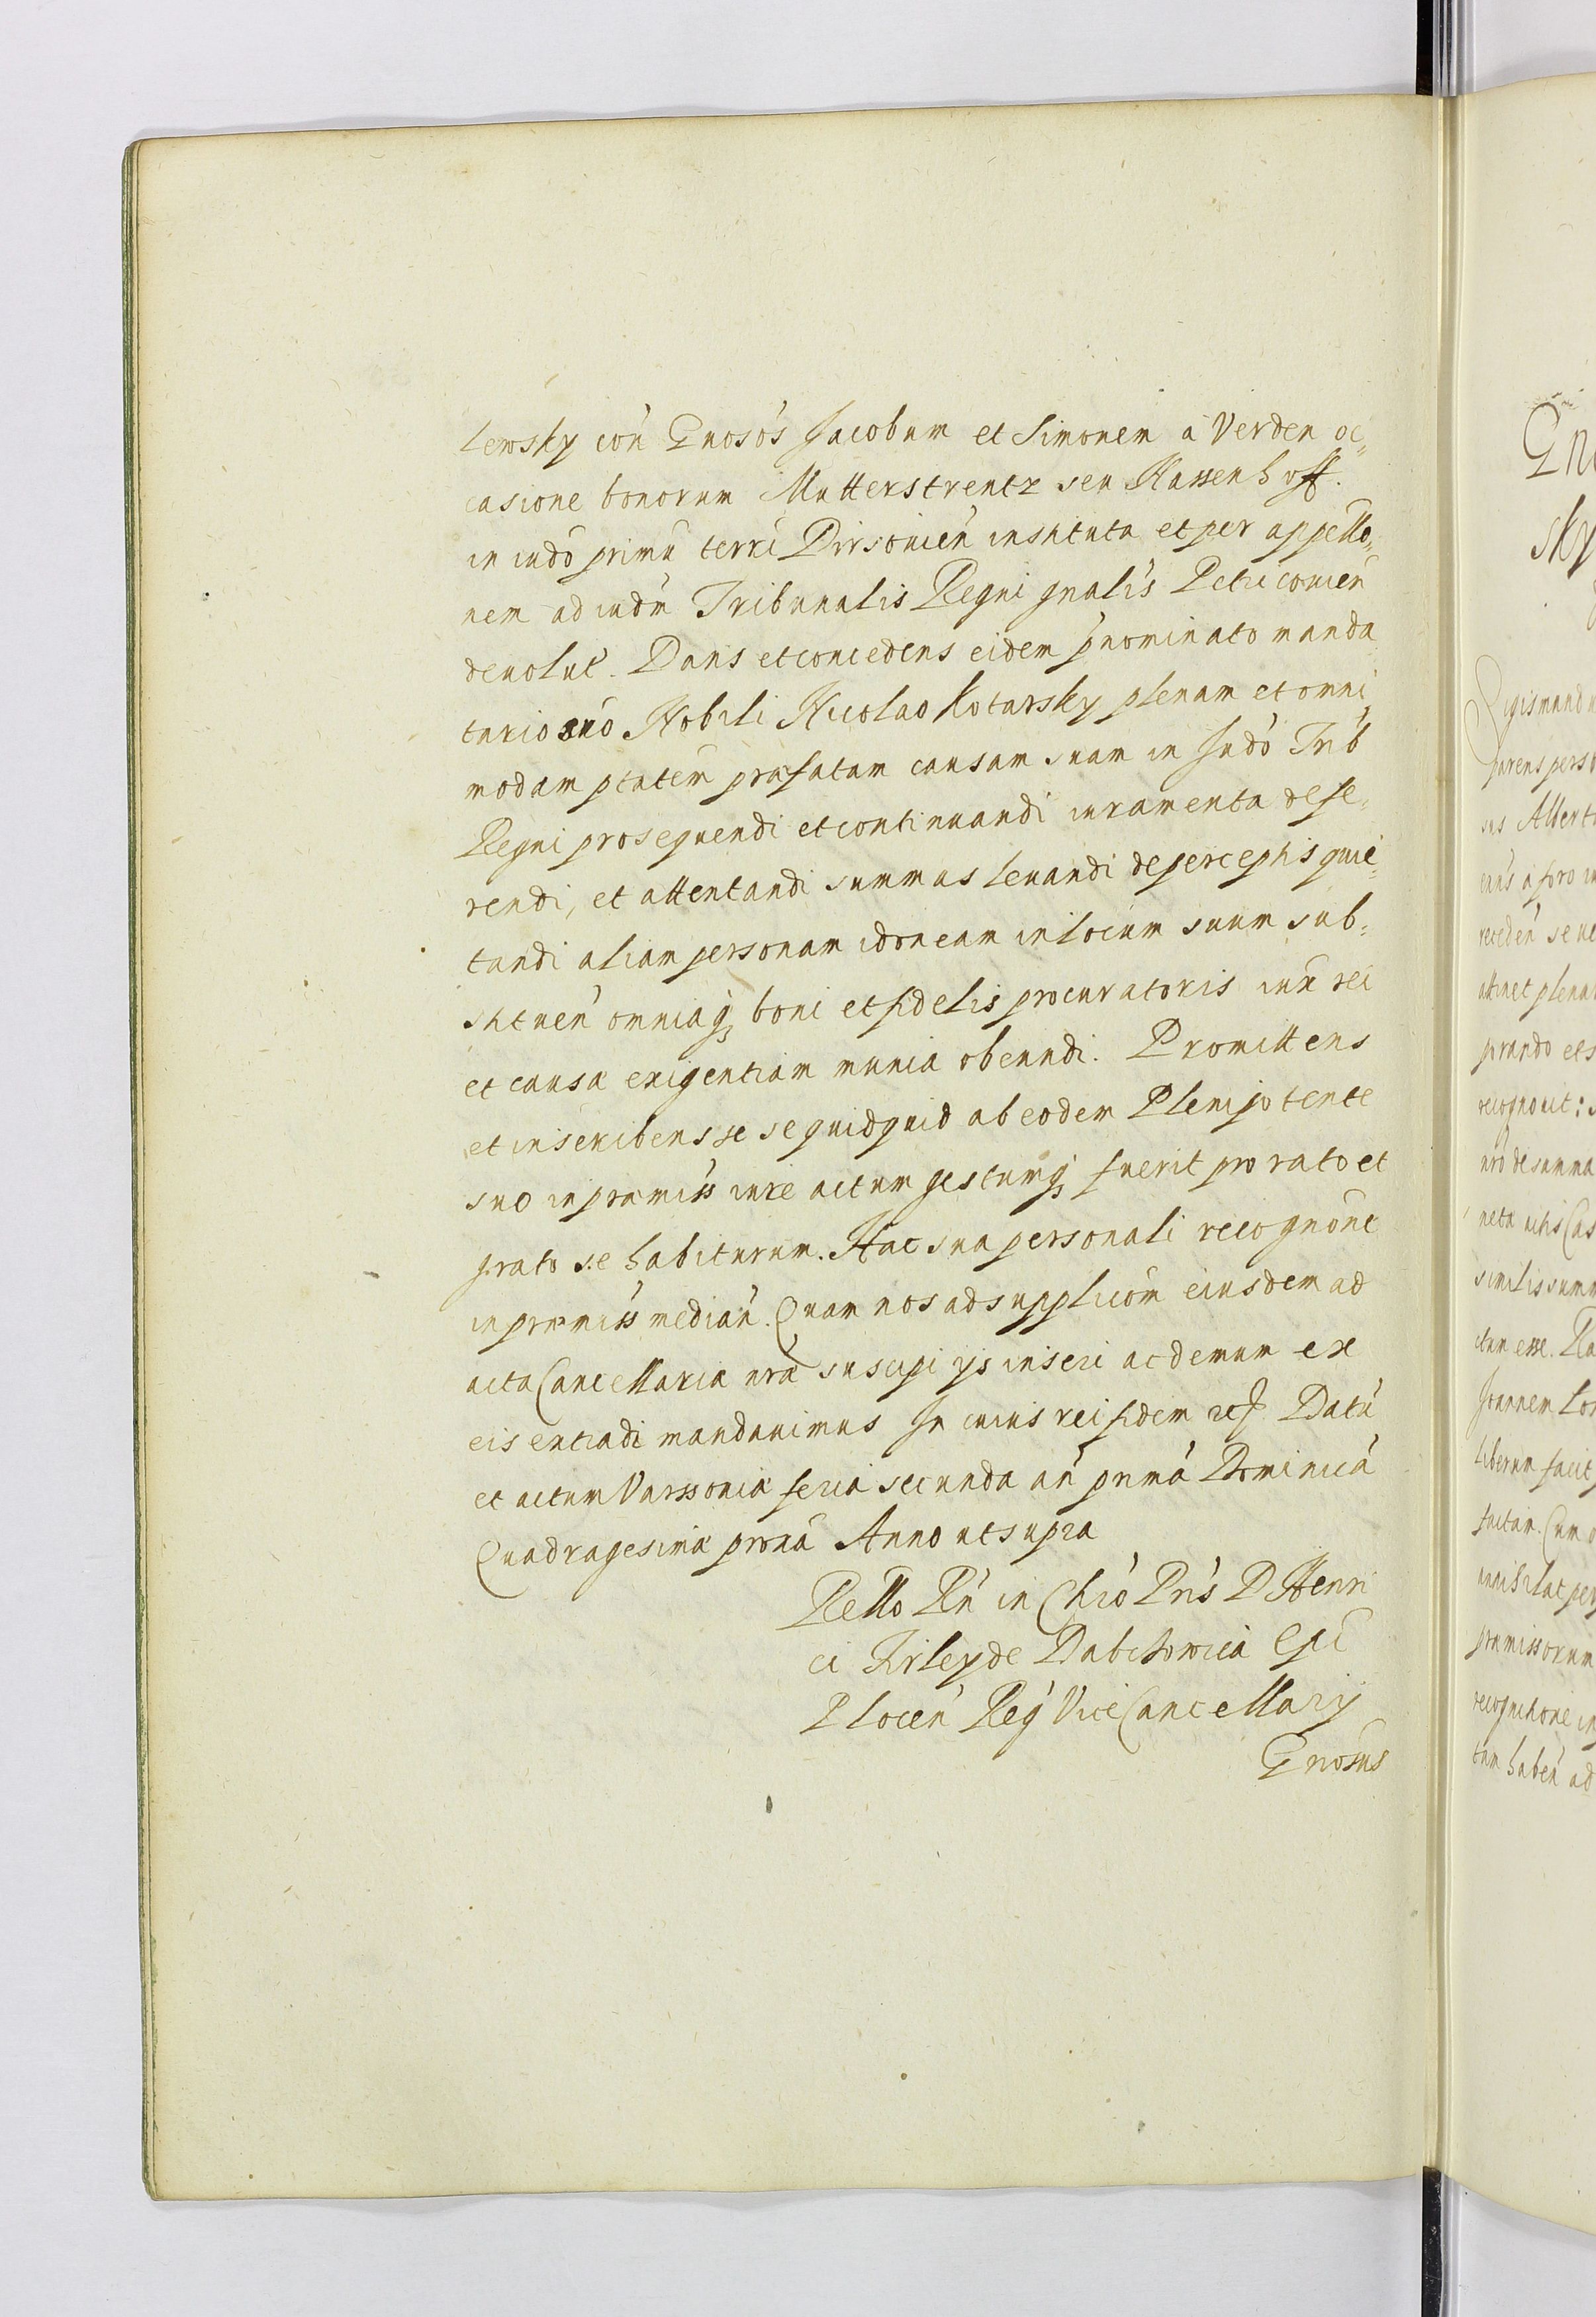 lewsky con Gnosos Jacobum et Simonem a Verden oc,,
casione bonorum Mutterstrentz seu Kassenhoff.
in iudo primu terri Dirsouien instituta et per appello,,
nem ad iudm Tribunalis Regni gnalis Petricouien
deuolut. Dans et concedens eidem pnominato manda
tario suo Nobili Nicolao Kotarsky plenam et omni
modam ptatem præfatam causam suam in Judo Trib
Regni prosequendi et continuandi iuramenta defe,
rendi, et attentandi summas leuandi de perceptis quie,,
tandi aliam personam idoneam in locum suum sub,,
stituen omniaq boni et fidelis procuratoris iux rei
et causæ exigentiam munia obeundi. Promittens
et inscribens se se quidquid ab eodem Plenipotente
suo in præmiss iure actum gestumq fuerit pro rato et
grato se habiturum. Hac sua personali recognone
in præmiss median. Quam nos ad supplicom eiusdem ad
acta Cancellariæ nræ suscipi ijs inseri ac demum ex
eis extradi mandauimus In cuius rei fidem etc Datu
et actum Varssouiæ feria secunda an prima Dominica
Quadragesimæ proxa Anno ut supra
Rello Rn in Chro Pris D Henri
ci Firley de Dabrowica Epi
Plocen Reg ViceCancellarij
Gnosus
Gn
sky
Sigismundu
parens perso
sus Albert
ens a foro
receden se
attinet plena
prando et
recognouit:
nro de summa
similis summ
itum esse.
Joannem
liberum facit
factam. Cum
annihilat per
præmissorum
recognitione in
tum haben ad